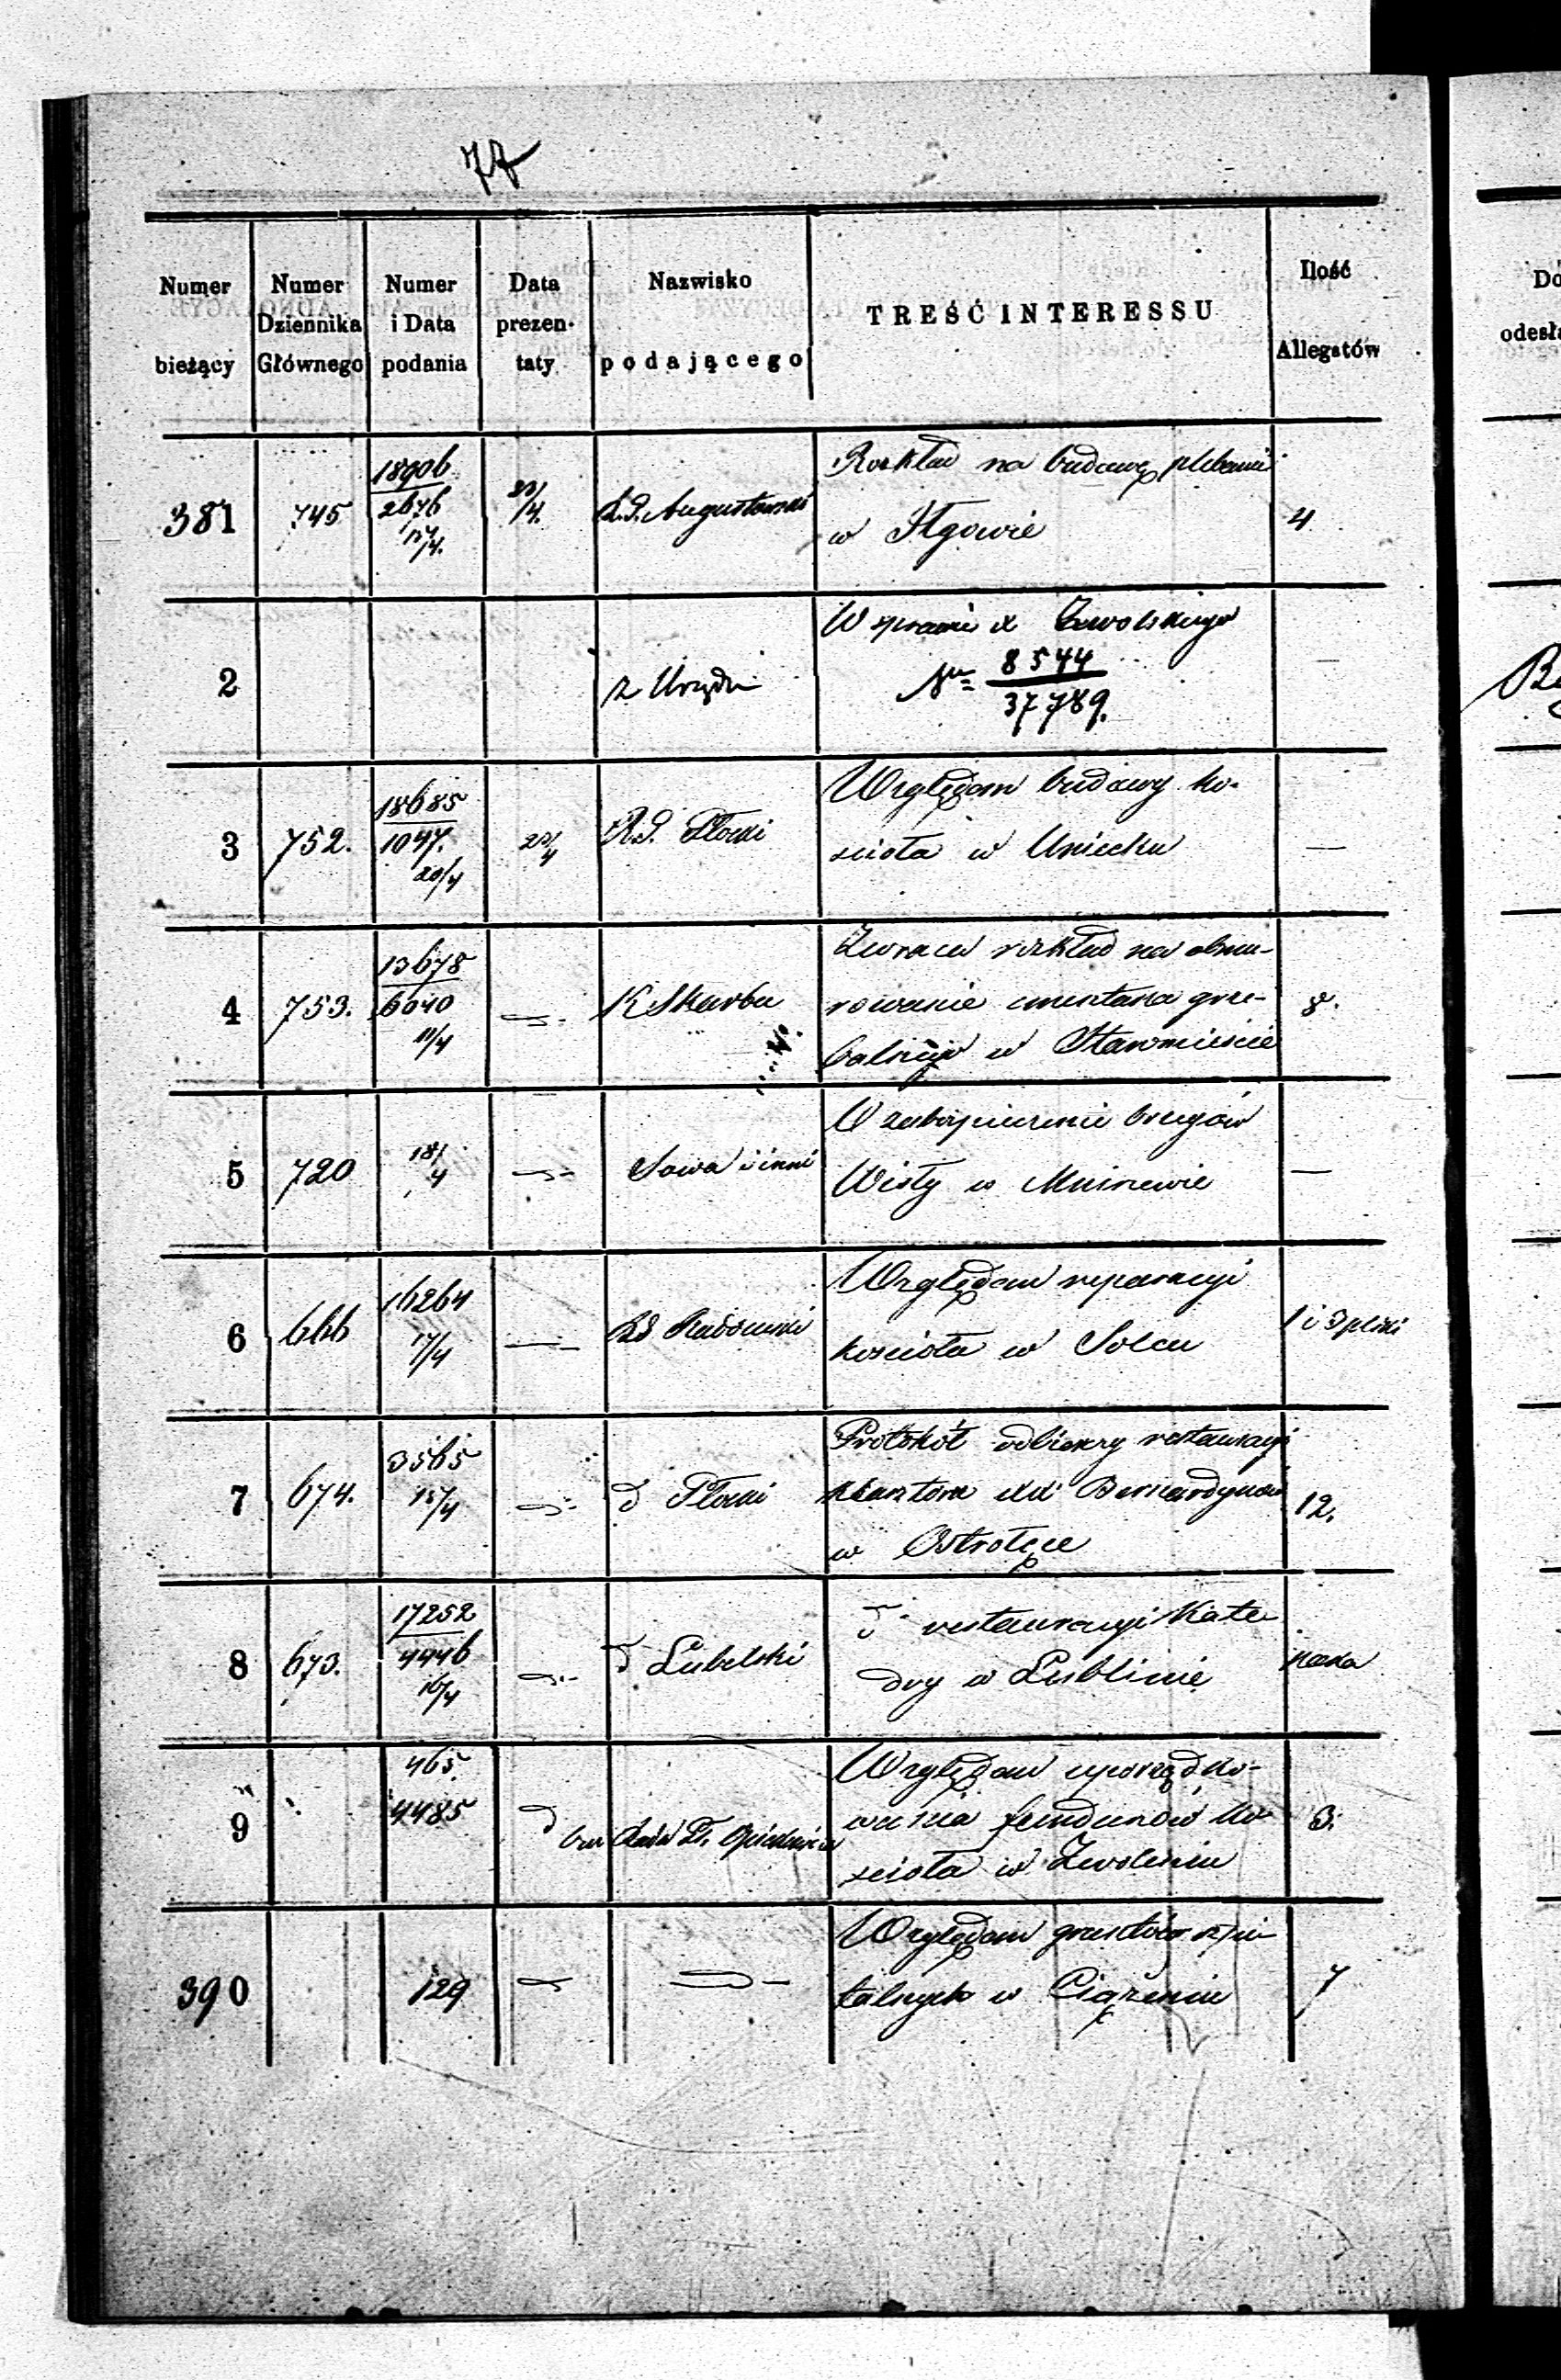 77
Numer bieżący
Numer Dziennika Głównego
Numer i Data podania
Data prezen- taty
Nazwisko podającego
TREŚĆ INTERESSU
Ilość Allegatów
Do
odesła
381 745 18906 2676 17/4. 23/4. R.G. Augustowski
Rozkład na budowę plebanii
w Iłgowie
4
2 z Urzędu
W sprawie X Zwolskiego
Nr 8544
37789.
—
3 752. 18685 1047. 20/4 23/4 R.G. Płocki
Względem budowy ko-
scioła w Uniecku
—
4 753. 13678 6040 11/4 K Skarbu
Zwraca rozkład na obmu-
rowanie cmentarza grze-
balnego w Staromieście
8.
5 720 18/4 Sowa i inni
W zabezpieczenie brzegów
Wisły w Mniszewie
—
6 666 16264 17/4 RG Radomski
Względem reparacyi
kościoła w Solcu
1 i 3 pliki
7 674. 3565 15/4 d Płocki
Protokół odbiorczy restauracyi
klasztoru XX Bernardynów
w Ostrołęce
12.
8 673. 17252 4446 16/4 d Lubelski
d restauracyi Kate-
dry w Lublinie
paka
9 465. 4485 d Rada
Względem uporządko-
wania funduszów ko-
scioła w Zwoleniu
3.
390 129
Względem gruntów szpi-
talnych w Ciążeniu
7